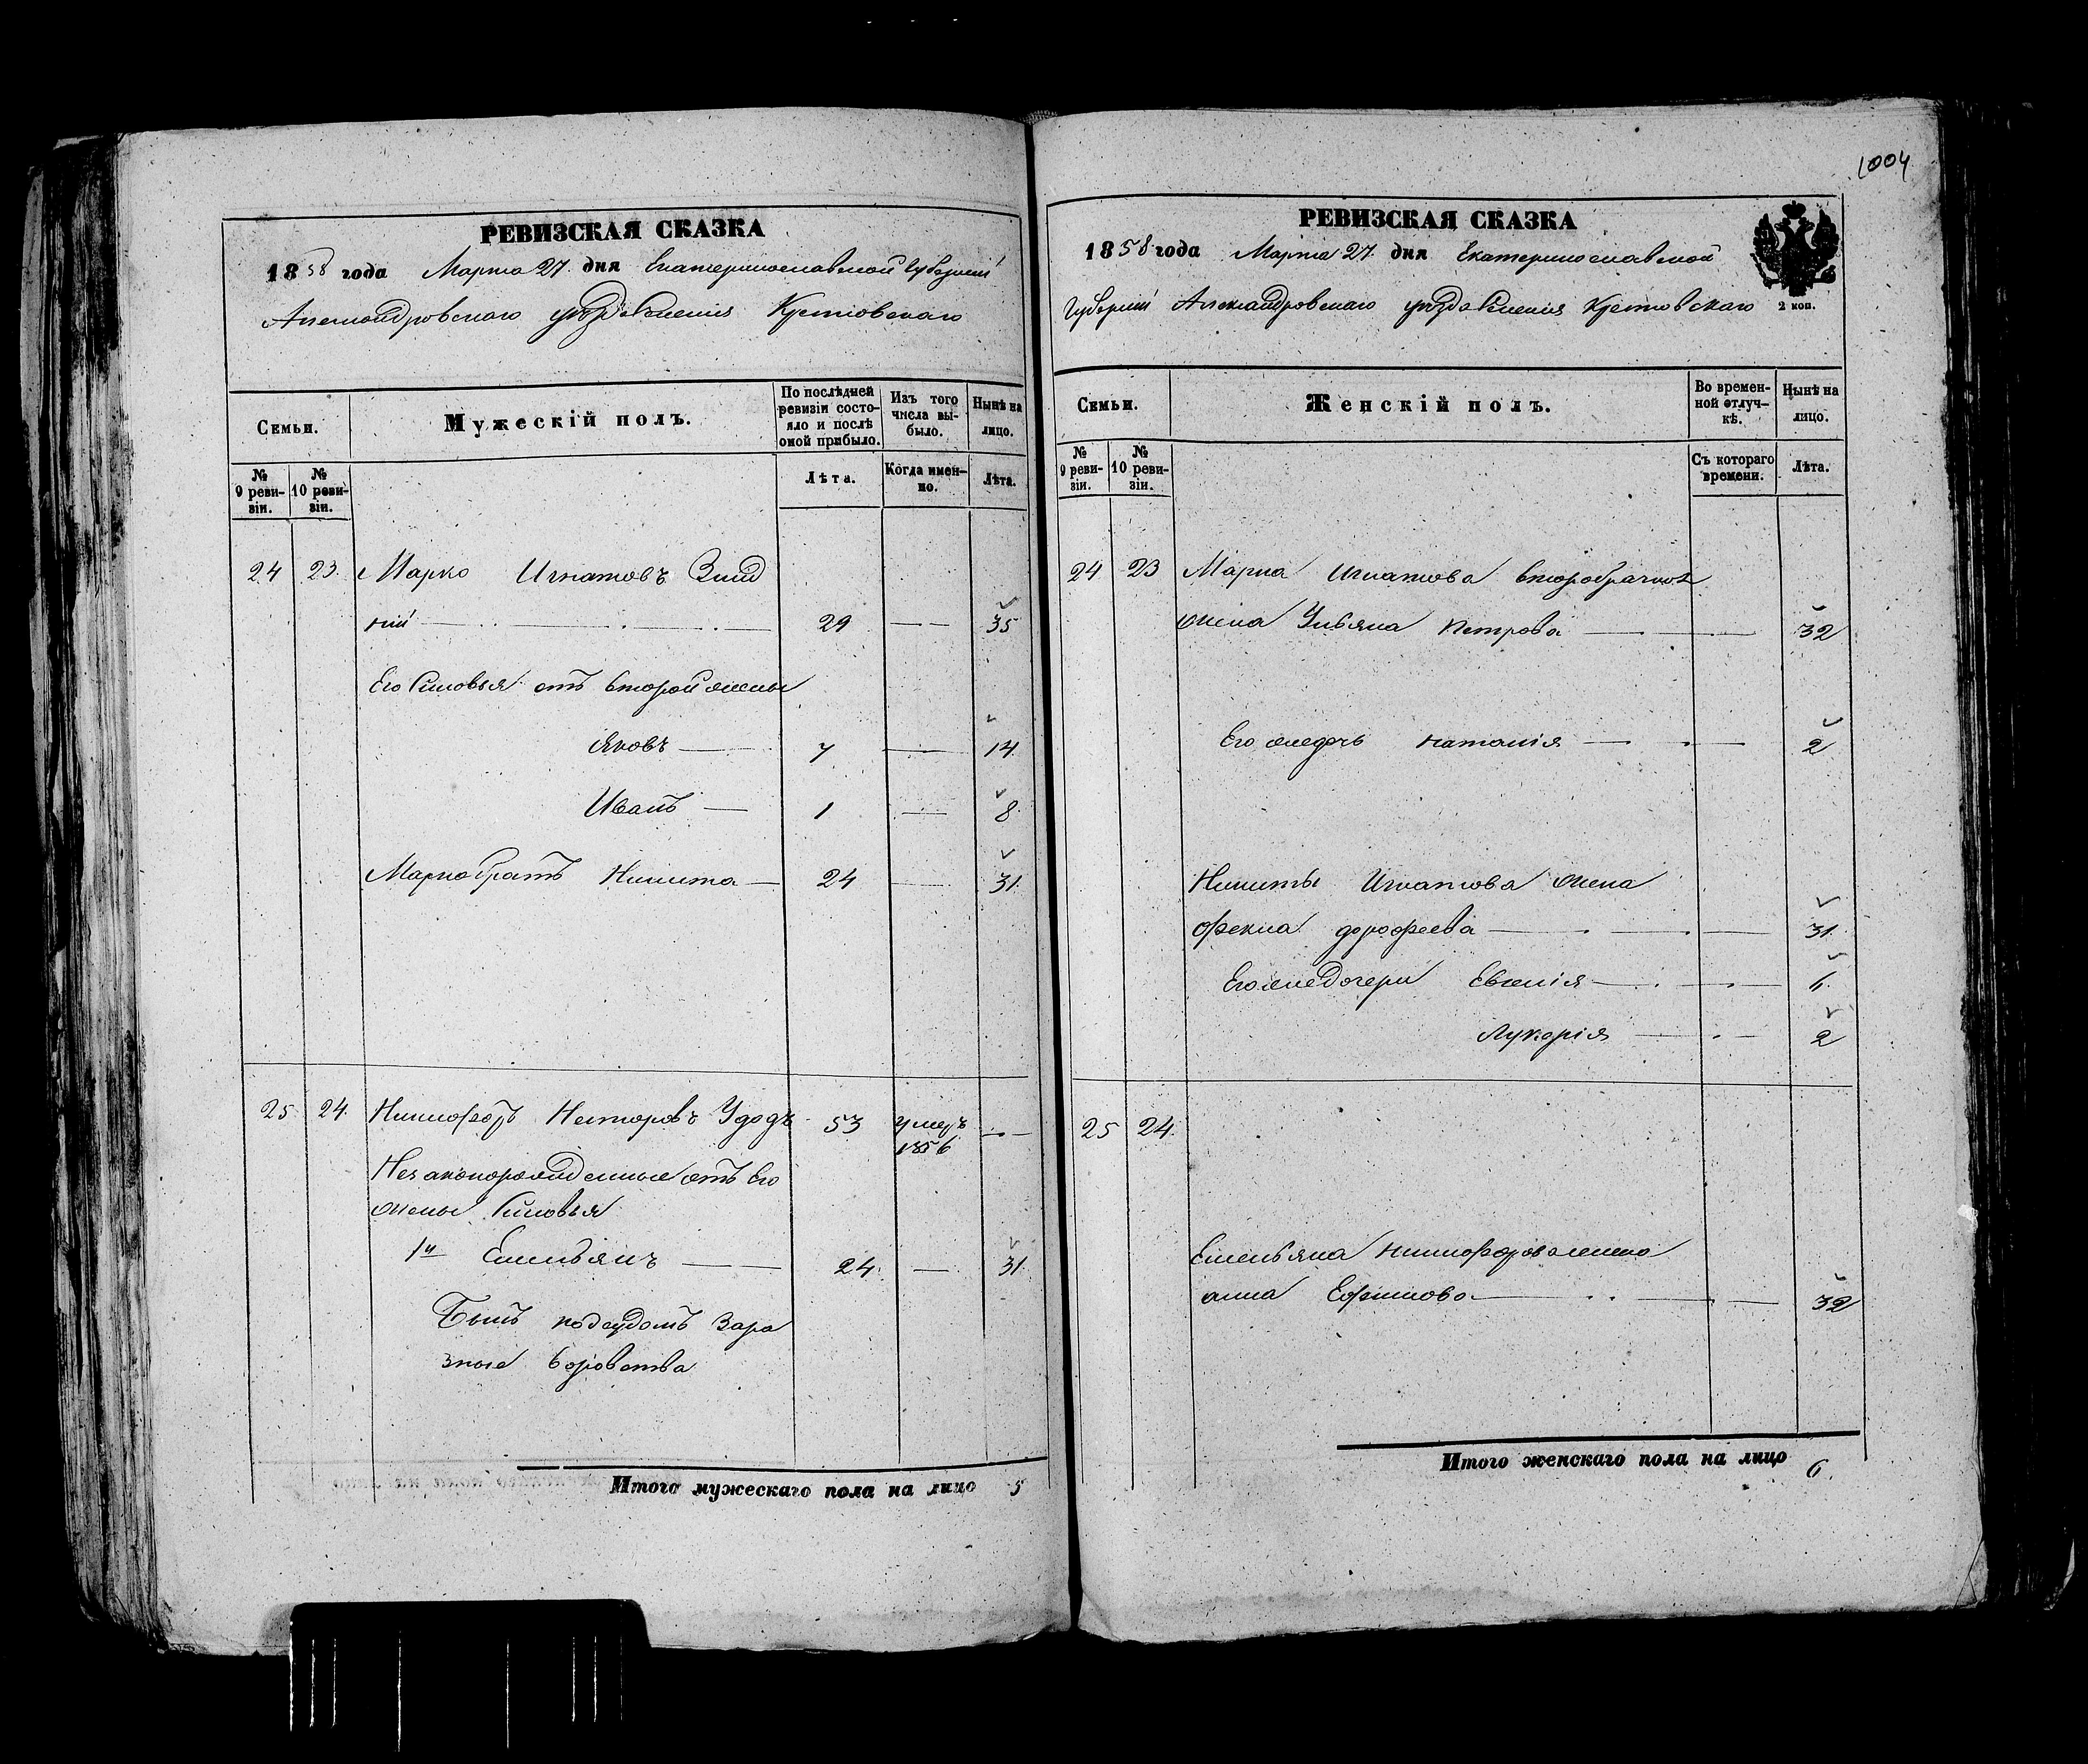 1004
РЕВИЗСКАЯ СКАЗКА
1858 года Марта 27. дня Екатеринославской Губерніи
Александровскаго уѣзда Селенія Кретовскаго
Семьи.
Мужескій полъ.
По послѣдней ревизіи состояло и послѣ оной прибыло.
Изъ того числа выбыло.
Нынѣ на лицо.
№ 9 ревизіи.
№ 10 ревизіи.
Лѣта.
Когда именно.
Лѣта.
24 23. Марко Игнатовъ
ній 29 — 35
Его Сыновья отъ второй жены
Яковъ — 7 — 14
Иванъ — 1 — 8
Марка братъ Никита — 24 — 31
25 24. Никифоръ Несторовъ Удодъ 53 умеръ 1856 —
Незаконорожденные отъ Его
жены Сыновья
1й Емельянъ — 24 — 31
Былъ подсудомъ Зара
зные Воровства
Итого мужескаго пола на лицо 5
РЕВИЗСКАЯ СКАЗКА
1858 года Марта 27. дня Екатеринославской
Губерніи Александровскаго уѣзда Селенія Кретовскаго
2 коп.
Семьи.
Женскій полъ.
Во временной отлучкѣ.
Нынѣ на лицо.
№ 9 ревизіи.
№ 10 ревизіи.
Съ котораго времени.
Лѣта.
24 23 Марка Игнатова второбрачная
жена Ульяна Петрова — 32
Его же дочь Наталія — 2
Никиты Игнатова жена
Фекла дорофеева — 31
Его же дочери Евгенія — 6
Лукерія — 2
25 24
Емельяна Никифорова жена
анна Ефимова — 32
Итого женскаго пола на лицо 6.